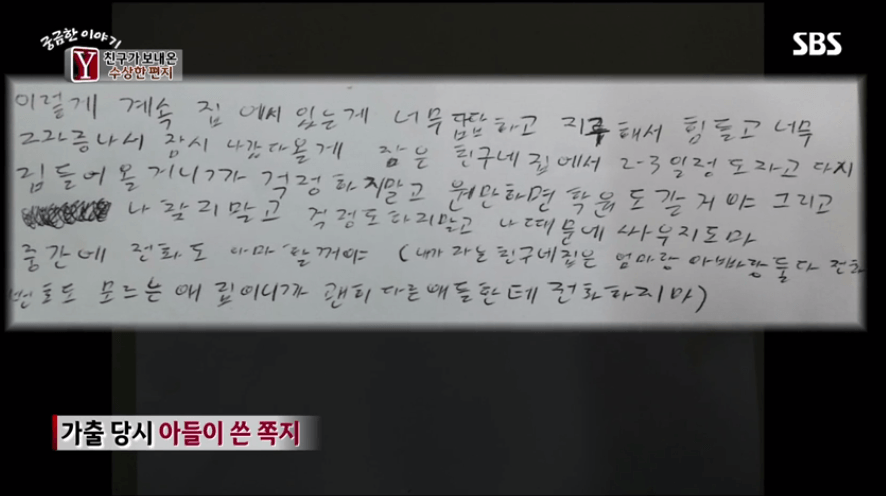 궁금한 이야기
Y
친구가 보내온
수상한 편지
SBS
이렇게 계속 집 에서 있는게 너무 답답하고 지루해서 힘들고 너무
짜증나서 잠시 나갔다올게 잠은 친구네 집에서 2-3일정도자고 다시
집들어올거니까 걱정하지말고 왠만하면 학원도갈거야 그리고
나 찾지말고 걱정도하지말고 나때문에 싸우지도마
중간에 전화도 아마 할꺼야 (내가 자는친구네집은 엄마랑 아빠랑둘다 전화
번호도 모르는 애 집이니까 괜히 다른애들한테 전화하지마)
가출 당시 아들이 쓴 쪽지